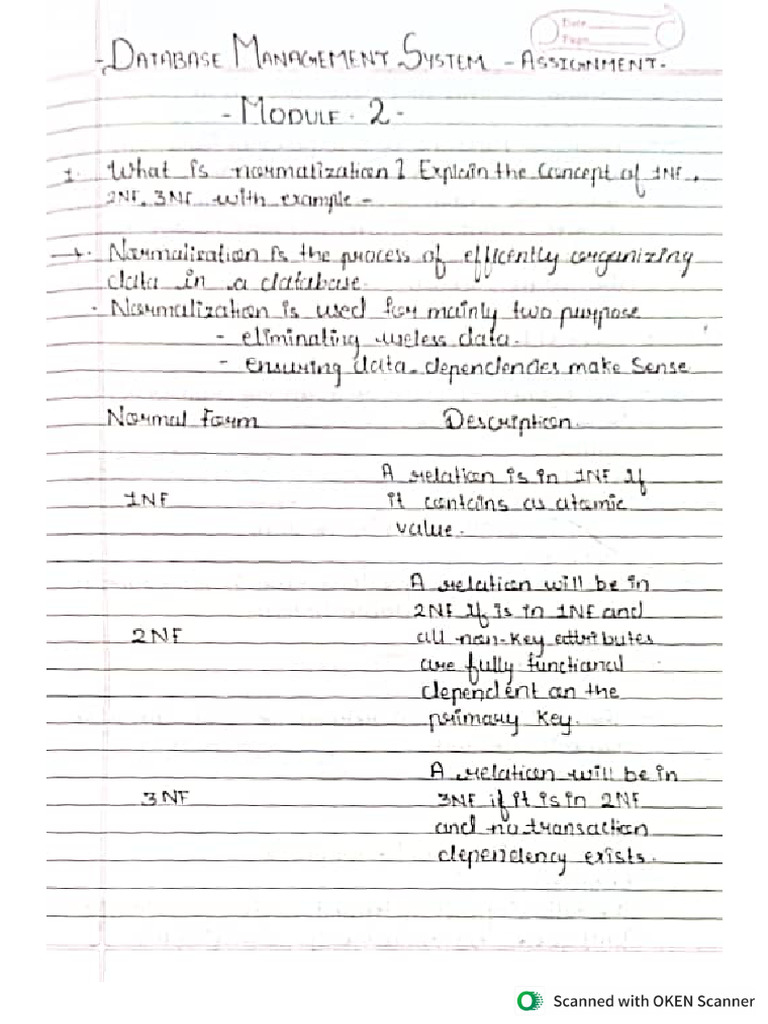 Date
Page
- DATABASE MANAGEMENT SYSTEM - ASSIGNMENT.
- MODULE . 2 -
1. What is normalization? Explain the concept of 1NF,
2NF, 3NF with example -
→. Normalization is the process of efficently organizing
data in a database.
- Normalization is used for mainly two purpose
- eliminating useless data.
- ensuring data dependencies make sense
Normal form Description
A relation is in 1NF if
1NF it contains as atomic
value.
A relation will be in
2NF if is in 1NF and
2NF all non-key attributes
are fully functional
dependent on the
primary key.
A relation will be in
3NF 3NF if it is in 2NF
and no transaction
dependency exists.
Scanned with OKEN Scanner